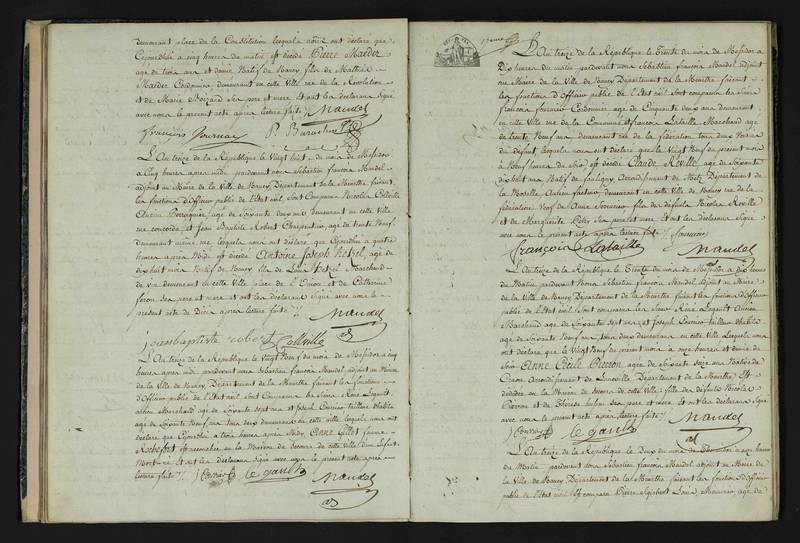 demeurant place de la Constitution lesquels nous ont declaré que
Cejourdhui a cinq heures du matin est decedé Pierre Maeder
agé de trois ans et demie Natif de Nancy fils de Mathieu
Maeder Cordonnier demeurant en cette Ville rue de la Revolution
et de Marie Boizard Ses pere et mere Et ont les declarans Signé
avec nous le present acte après lecture faite
Mandel
françois P.
L'An treize de la République le Vingt huit du mois de Messidor
a Cinq heures après midi pardevant nous Sébastien françois Mandel
adjoint au Maire de la Ville de Nancy Département de la Meurthe faisant
les fonctions d'Officier public de l'Etat civil Sont Comparus Nicolas Collville
agé de Soixante deux ans demeurant en cette Ville
rue concorde et Jean Baptiste Robert Charpentier, agé de trente Neuf
demeurant même rue lesquels nous ont déclaré que Cejourdhui a quatre
heures après Midi est decedé Antoine Joseph hetzel, agé de
dix huit mois Natif de Nancy fils de Louis Hetzel Marchand
de vin demeurant en cette Ville place de l'Union et de Catherine
feron Ses pere et mere et ont les declarans Signé avec nous le
present acte de Décès après lecture faite
Mandel
jeanbaptiste robert Collville
L'An treize de la République le Vingt Neuf du mois de Messidor a cinq
heures après midi pardevant nous Sébastien françois Mandel adjoint au Maire
de la Ville de Nancy, Département de la Meurthe faisant les fonctions
d'Officier public de l'Etat civil Sont Comparus les Sieurs René Legault
ancien Marchand agé de Soixante sept ans et Joseph Cornier tailleur d'habits
agé de Soixante Neuf ans tous deux demeurant en cette Ville lesquels nous ont
declaré que Cejourdhui a trois heures après Midy Anne Gillet femme
Rochefort est accouchée en la Maison de Secours de cette Ville d'un Enfant
Mort et ont les declarans Signé avec nous le present acte après
lecture faite
Cornier le gault
Mandel
L'An treize de la République le Trente du mois de Messidor a
Dix heures du matin pardevant nous Sébastien françois Mandel adjoint
au Maire de la Ville de Nancy Département de la Meurthe faisant
les fonctions d'Officier public de l'Etat civil Sont comparus les Sieurs
françois fournier Cordonnier agé de Cinquante deux ans demeurant
en cette Ville rue de la Communes et françois Lataille Marchand agé
de trente Neuf ans demeurant rue de la fédération tous deux Voisins
du défunt, lesquels nous ont déclaré que le Vingt Neuf du present mois
a Neuf heures du Soir est decedé Claude Reville agé de Soixante
dix huit ans Natif de Arrondissement de Metz Département de
la Moselle, demeurant en cette Ville de Nancy rue de la
fédération Veuf de Anne fils de défunts Nicolas Reville
et de Marguerite Ses pere et mere Et ont les declarans Signé
avec nous le present acte après lecture faite
françois Lataille fournier Mandel
L'An treize de la République le Trente du mois de Messidor a dix heures
du Matin pardevant Nous Sébastien françois Mandel adjoint au Maire
de la Ville de Nancy, Département de la Meurthe faisant les fonctions d'Officier
public de l'Etat civil Sont comparus les Sieurs René Legault Ancien
Marchand agé de Soixante Sept ans et Joseph Cornier tailleur d'habits
agé de Soixante Neuf ans tous deux demeurant en cette Ville Lesquels nous
ont declaré que le Vingt Neuf du present mois a onze heures du
Soir Anne Cécile Pierron agée de Soixante Seize ans Native de
Arrondissement de Luneville Département de la Meurthe est
décédée en la Maison de Secours de cette Ville fille des défunts Nicolas
Pierron et de Thérèse Ses pere et mere Et ont les declarans Signé
avec nous le present acte après lecture faite
Cornier le gault Mandel
L'An treize de la République le Deux du mois de Thermidor a onze heures
du Matin pardevant Nous Sébastien françois Mandel adjoint au Maire de
la Ville de Nancy Département de la Meurthe faisant les fonctions d'Officier
public de l'Etat civil Est comparu Pierre Sigisbert Louis agé de